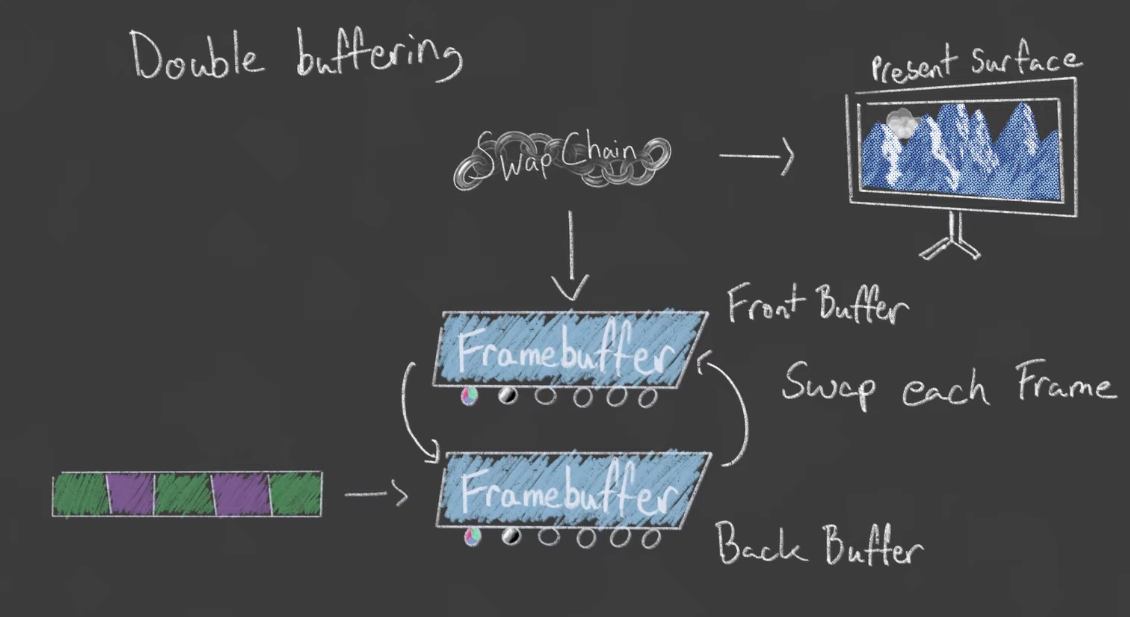 Double buffering
Present Surface
Swap Chain
Front Buffer
Framebuffer
Swap each Frame
Framebuffer
Back Buffer